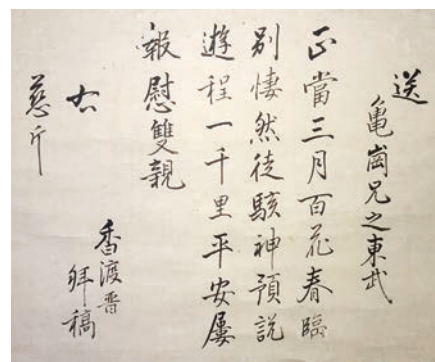 送
亀崗兄之東武
正當三月百花春臨
別悽然徒駭神預説
遊程一千里平安屢
報慰雙親
右
慈斤
香渡晋
拜稿